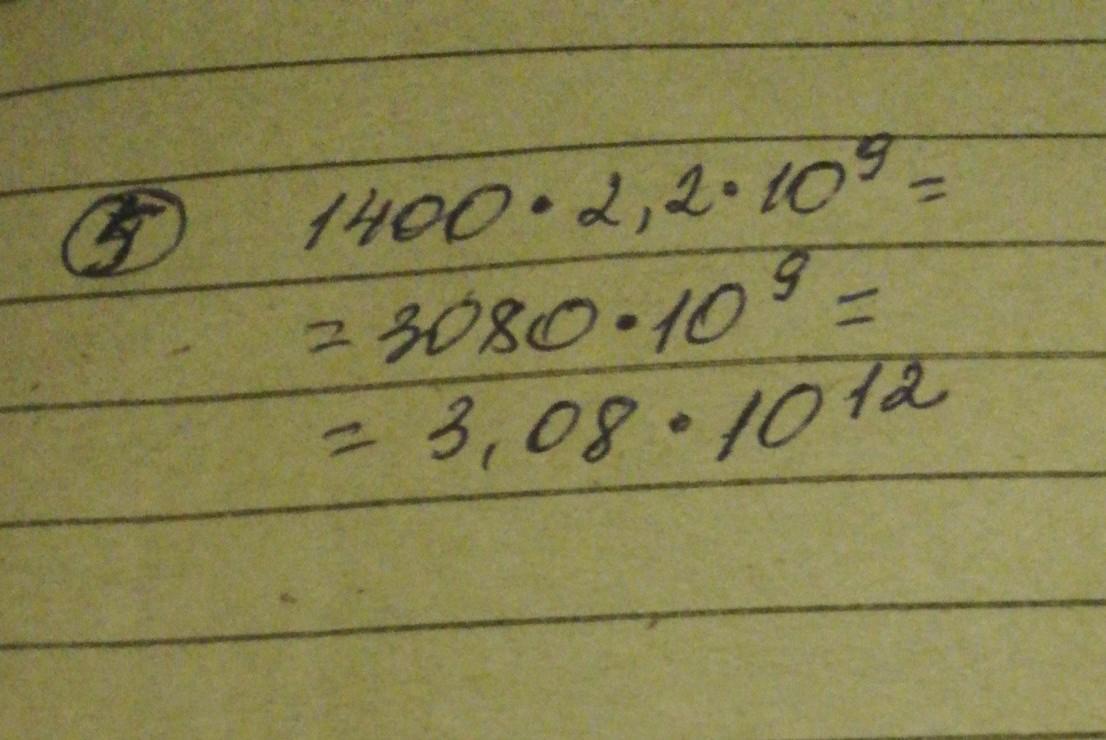 5 1400 · 2,2 · 10⁹ =
= 3080 · 10⁹ =
= 3,08 · 10¹²